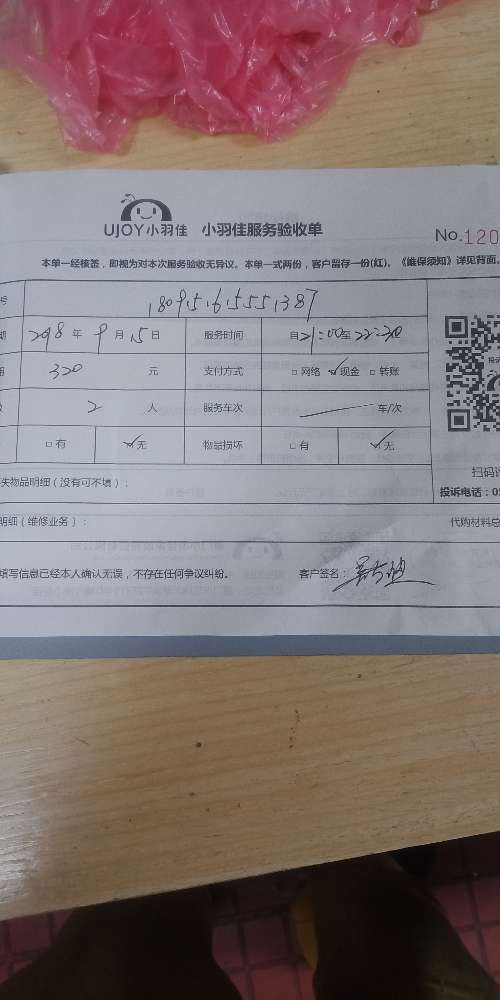 UJOY小羽佳 小羽佳服务验收单
No.120
本单一经核签，即视为对本次服务验收无异议。本单一式两份，客户留存一份(红)。《维保须知》详见背面。
号 1809151615551387
期 2018 年 9 月 15 日 服务时间 自 21:00 至 22:30
用 320 元 支付方式 □ 网络 ✓现金 □ 转账
数 2 人 服务车次 车/次
□ 有 ✓无 物品损坏 □ 有 ✓无
失物品明细（没有可不填）：
扫码评
投诉电话：05
明细（维修业务）： 代购材料总
填写信息已经本人确认无误，不存在任何争议纠纷。 客户签名：